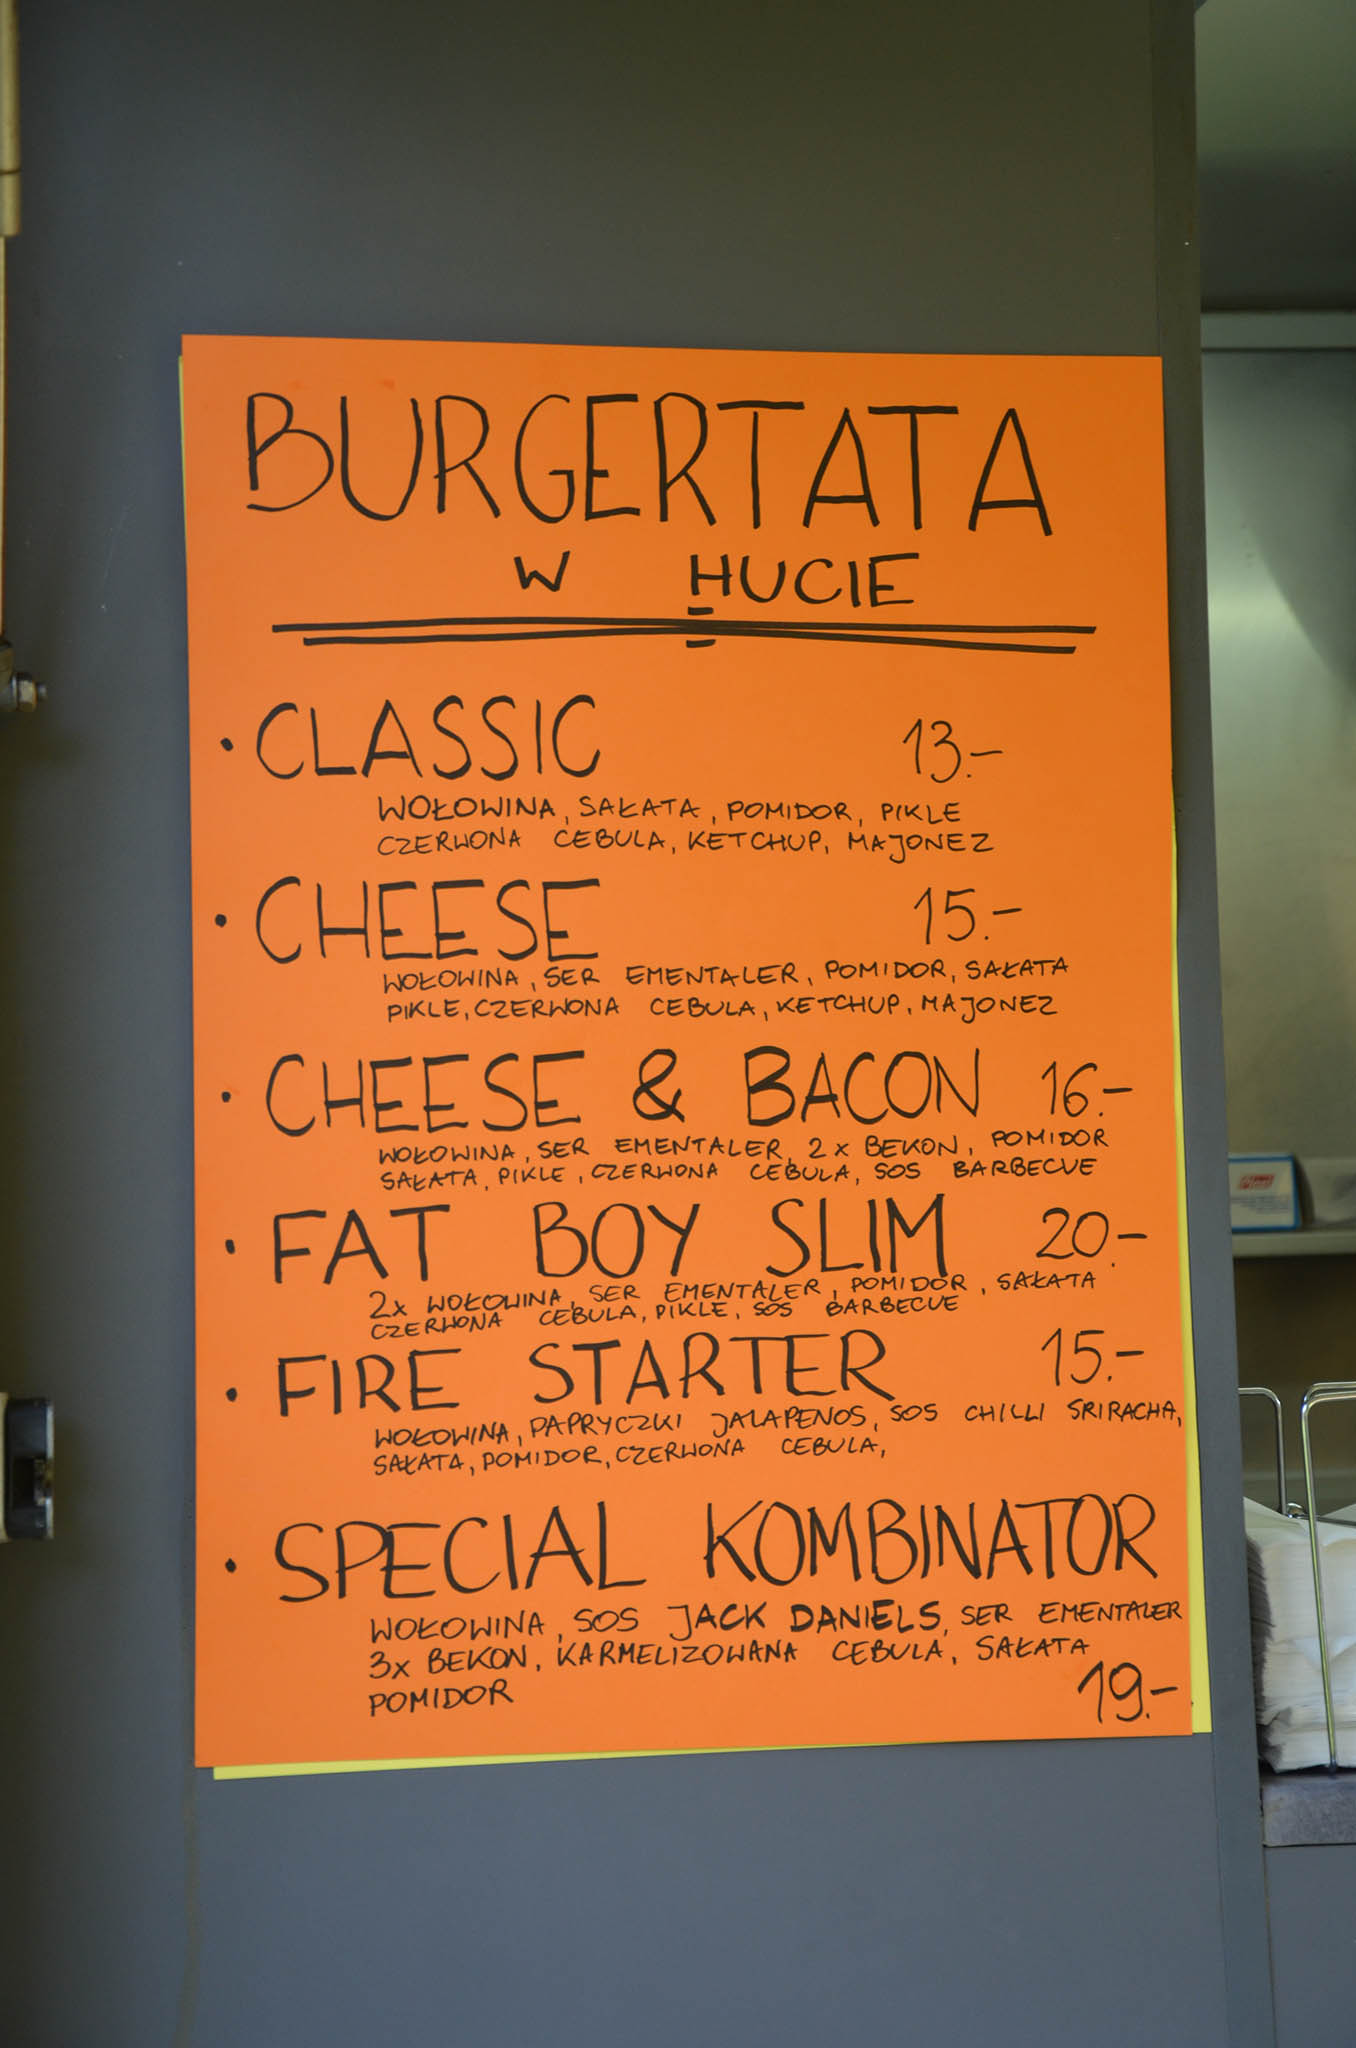 BURGERTATA
W HUCIE
· CLASSIC 13.-
WOŁOWINA, SAŁATA, POMIDOR, PIKLE
CZERWONA CEBULA, KETCHUP, MAJONEZ
· CHEESE 15.-
WOŁOWINA, SER EMENTALER, POMIDOR, SAŁATA
PIKLE, CZERWONA CEBULA, KETCHUP, MAJONEZ
· CHEESE & BACON 16.-
WOŁOWINA, SER EMENTALER, 2 x BEKON, POMIDOR
SAŁATA, PIKLE, CZERWONA CEBULA, SOS BARBECUE
· FAT BOY SLIM 20.-
2x WOŁOWINA, SER EMENTALER, POMIDOR, SAŁATA
CZERWONA CEBULA, PIKLE, SOS BARBECUE
· FIRE STARTER 15.-
WOŁOWINA, PAPRYCZKI JALAPENOS, SOS CHILLI SRIRACHA,
SAŁATA, POMIDOR, CZERWONA CEBULA,
· SPECIAL KOMBINATOR
WOŁOWINA, SOS JACK DANIELS, SER EMENTALER
3x BEKON, KARMELIZOWANA CEBULA, SAŁATA
POMIDOR 19.-